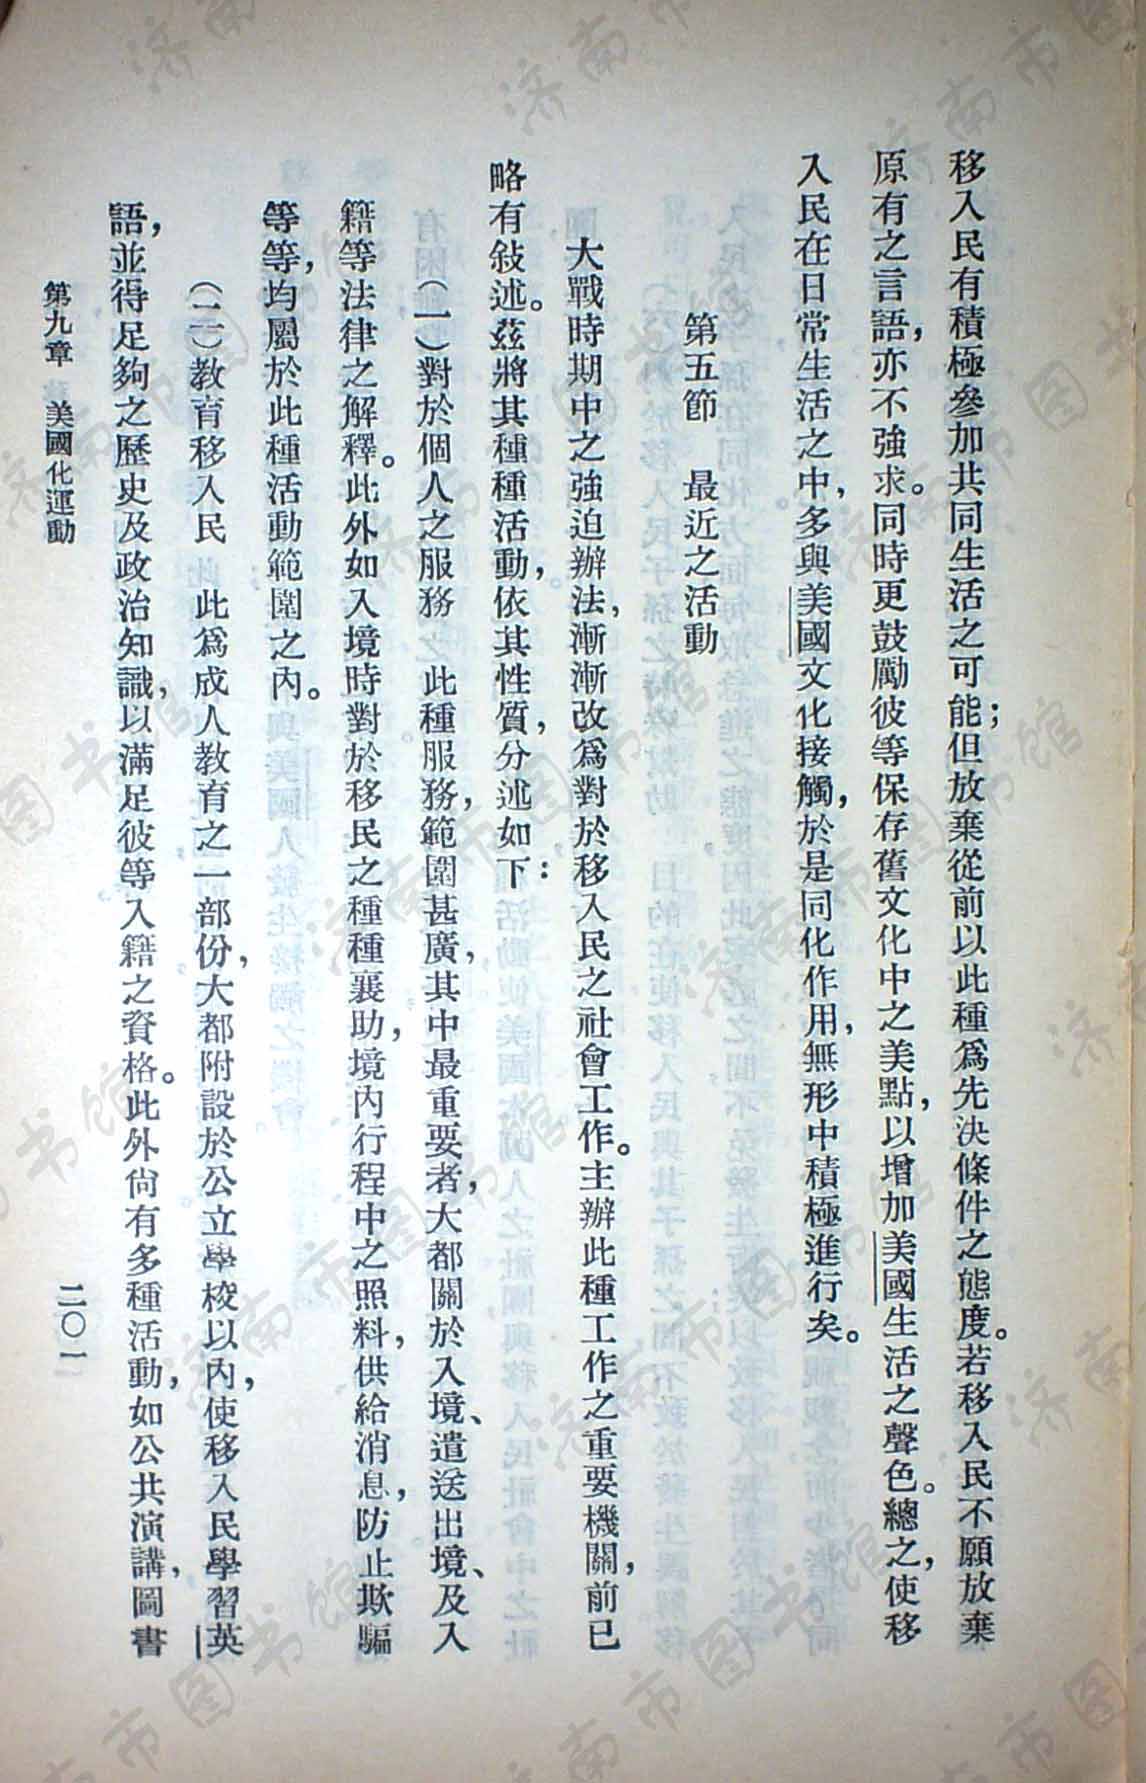 移入民有積極參加共同生活之可能；但放棄從前以此種爲先決條件之態度。若移入民不願放棄
原有之言語，亦不強求。同時更鼓勵彼等保存舊文化中之美點，以增加美國生活之聲色。總之，使移
入民在日常生活之中，多與美國文化接觸，於是同化作用，無形中積極進行矣。
第五節　最近之活動
大戰時期中之強迫辦法，漸漸改爲對於移入民之社會工作。主辦此種工作之重要機關，前已
略有敍述。茲將其種種活動，依其性質，分述如下：
（一）對於個人之服務　此種服務，範圍甚廣，其中最重要者，大都關於入境、遣送出境、及入
籍等法律之解釋。此外如入境時對於移民之種種襄助，境內行程中之照料，供給消息，防止欺騙
等等，均屬於此種活動範圍之內。
（二）教育移入民　此爲成人教育之一部份，大都附設於公立學校以內，使移入民學習英
語，並得足夠之歷史及政治知識，以滿足彼等入籍之資格。此外尙有多種活動，如公共演講，圖書
第九章　美國化運動
二〇一
济南市图书馆